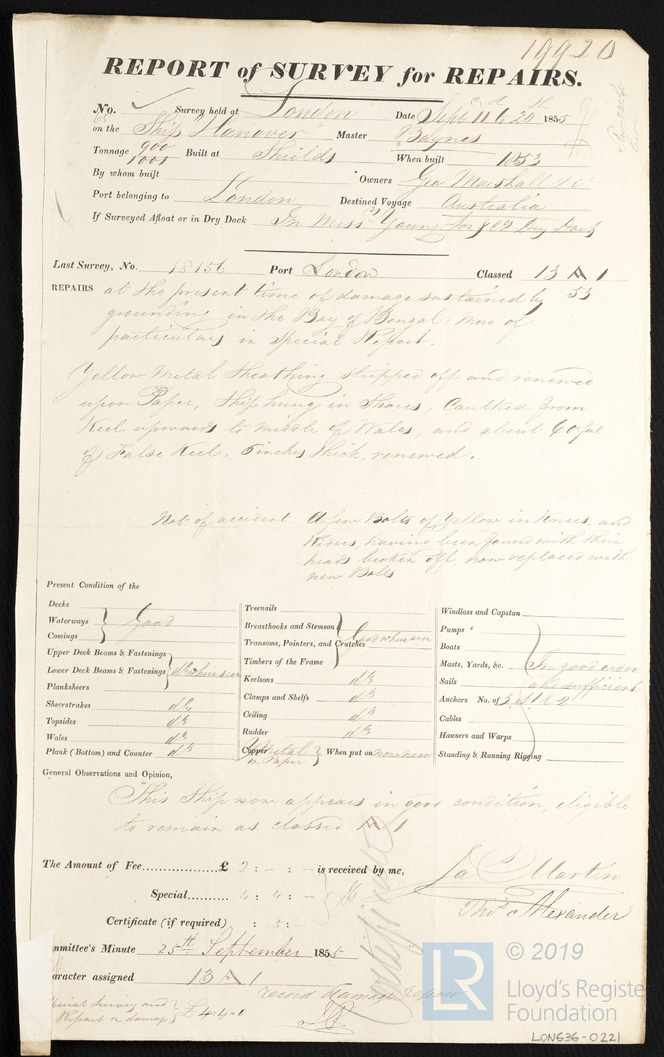 19920
REPORT of SURVEY for REPAIRS.
No. Survey held at London Date Septr 11 to 20th 1855
on the Ship "Hanover" Master Baynes
Tonnage 900 1001 Built at Shields When built 1853
By whom built Owners Geo Marshall & Co
Port belonging to London Destined Voyage Australia
If Surveyed Afloat or in Dry Dock In Miss Young Son & Co Dry Dock
Last Survey, No. 18156 Port London Classed 13 A 1
53
REPAIRS at the present time of damage sustained by
grounding in the Bay of Bengal. More of
particulars in Special Report.
Yellow Metal Sheathing stripped off and renewed
upon Paper, Ship hung in Shores, Caulked from
Keel upwards to middle of Wales, and about 60 feet
of False Keel, 6 inches thick, renewed.
Not of accident A few Bolts of Yellow in Knees, and
Riders, having been found with their
heads broken off, now replaced with
new Bolts
Present Condition of the
Decks
Waterways Good
Comings
Upper Deck Beams & Fastenings
Lower Deck Beams & Fastenings do where seen
Planksheers
Sheerstrakes do
Topsides do
Wales do
Plank (Bottom) and Counter do
Treenails
Breasthooks and Stemson
Transoms, Pointers, and Crutches Good where seen
Timbers of the Frame
Keelsons do
Clamps and Shelfs do
Ceiling do
Rudder do
Copper Y Metal on Paper When put on now new
Windlass and Capstan
Pumps
Boats
Masts, Yards, &c. In good order
Sails and sufficient
Anchors No. of 3
Cables
Hausers and Warps
Standing & Running Rigging
General Observations and Opinion,
This Ship now appears in good condition, eligible
to remain as classed A 1
The Amount of Fee £ 3 : - : - is received by me,
Special 4 : 4 : -
Certificate (if required) : 5 : -
Jas C Martin
Thos Alexander
mmittee's Minute 25th September 1855
aracter assigned 13 A 1
Special Survey and
Report on damage £4.4.0
© 2019
LR
Lloyd's Registe
Foundation
LON636-0221